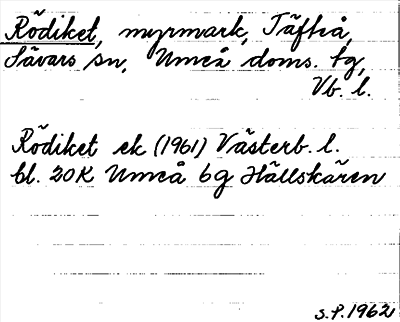 Rödiket, myrmark, Täfteå,
Sävars sn, Umeå doms. tg,
Vb. l.
Rödiket ek (1961) Västerb. l.
bl. 20K Umeå 6g Hällskären
S.P. 1962